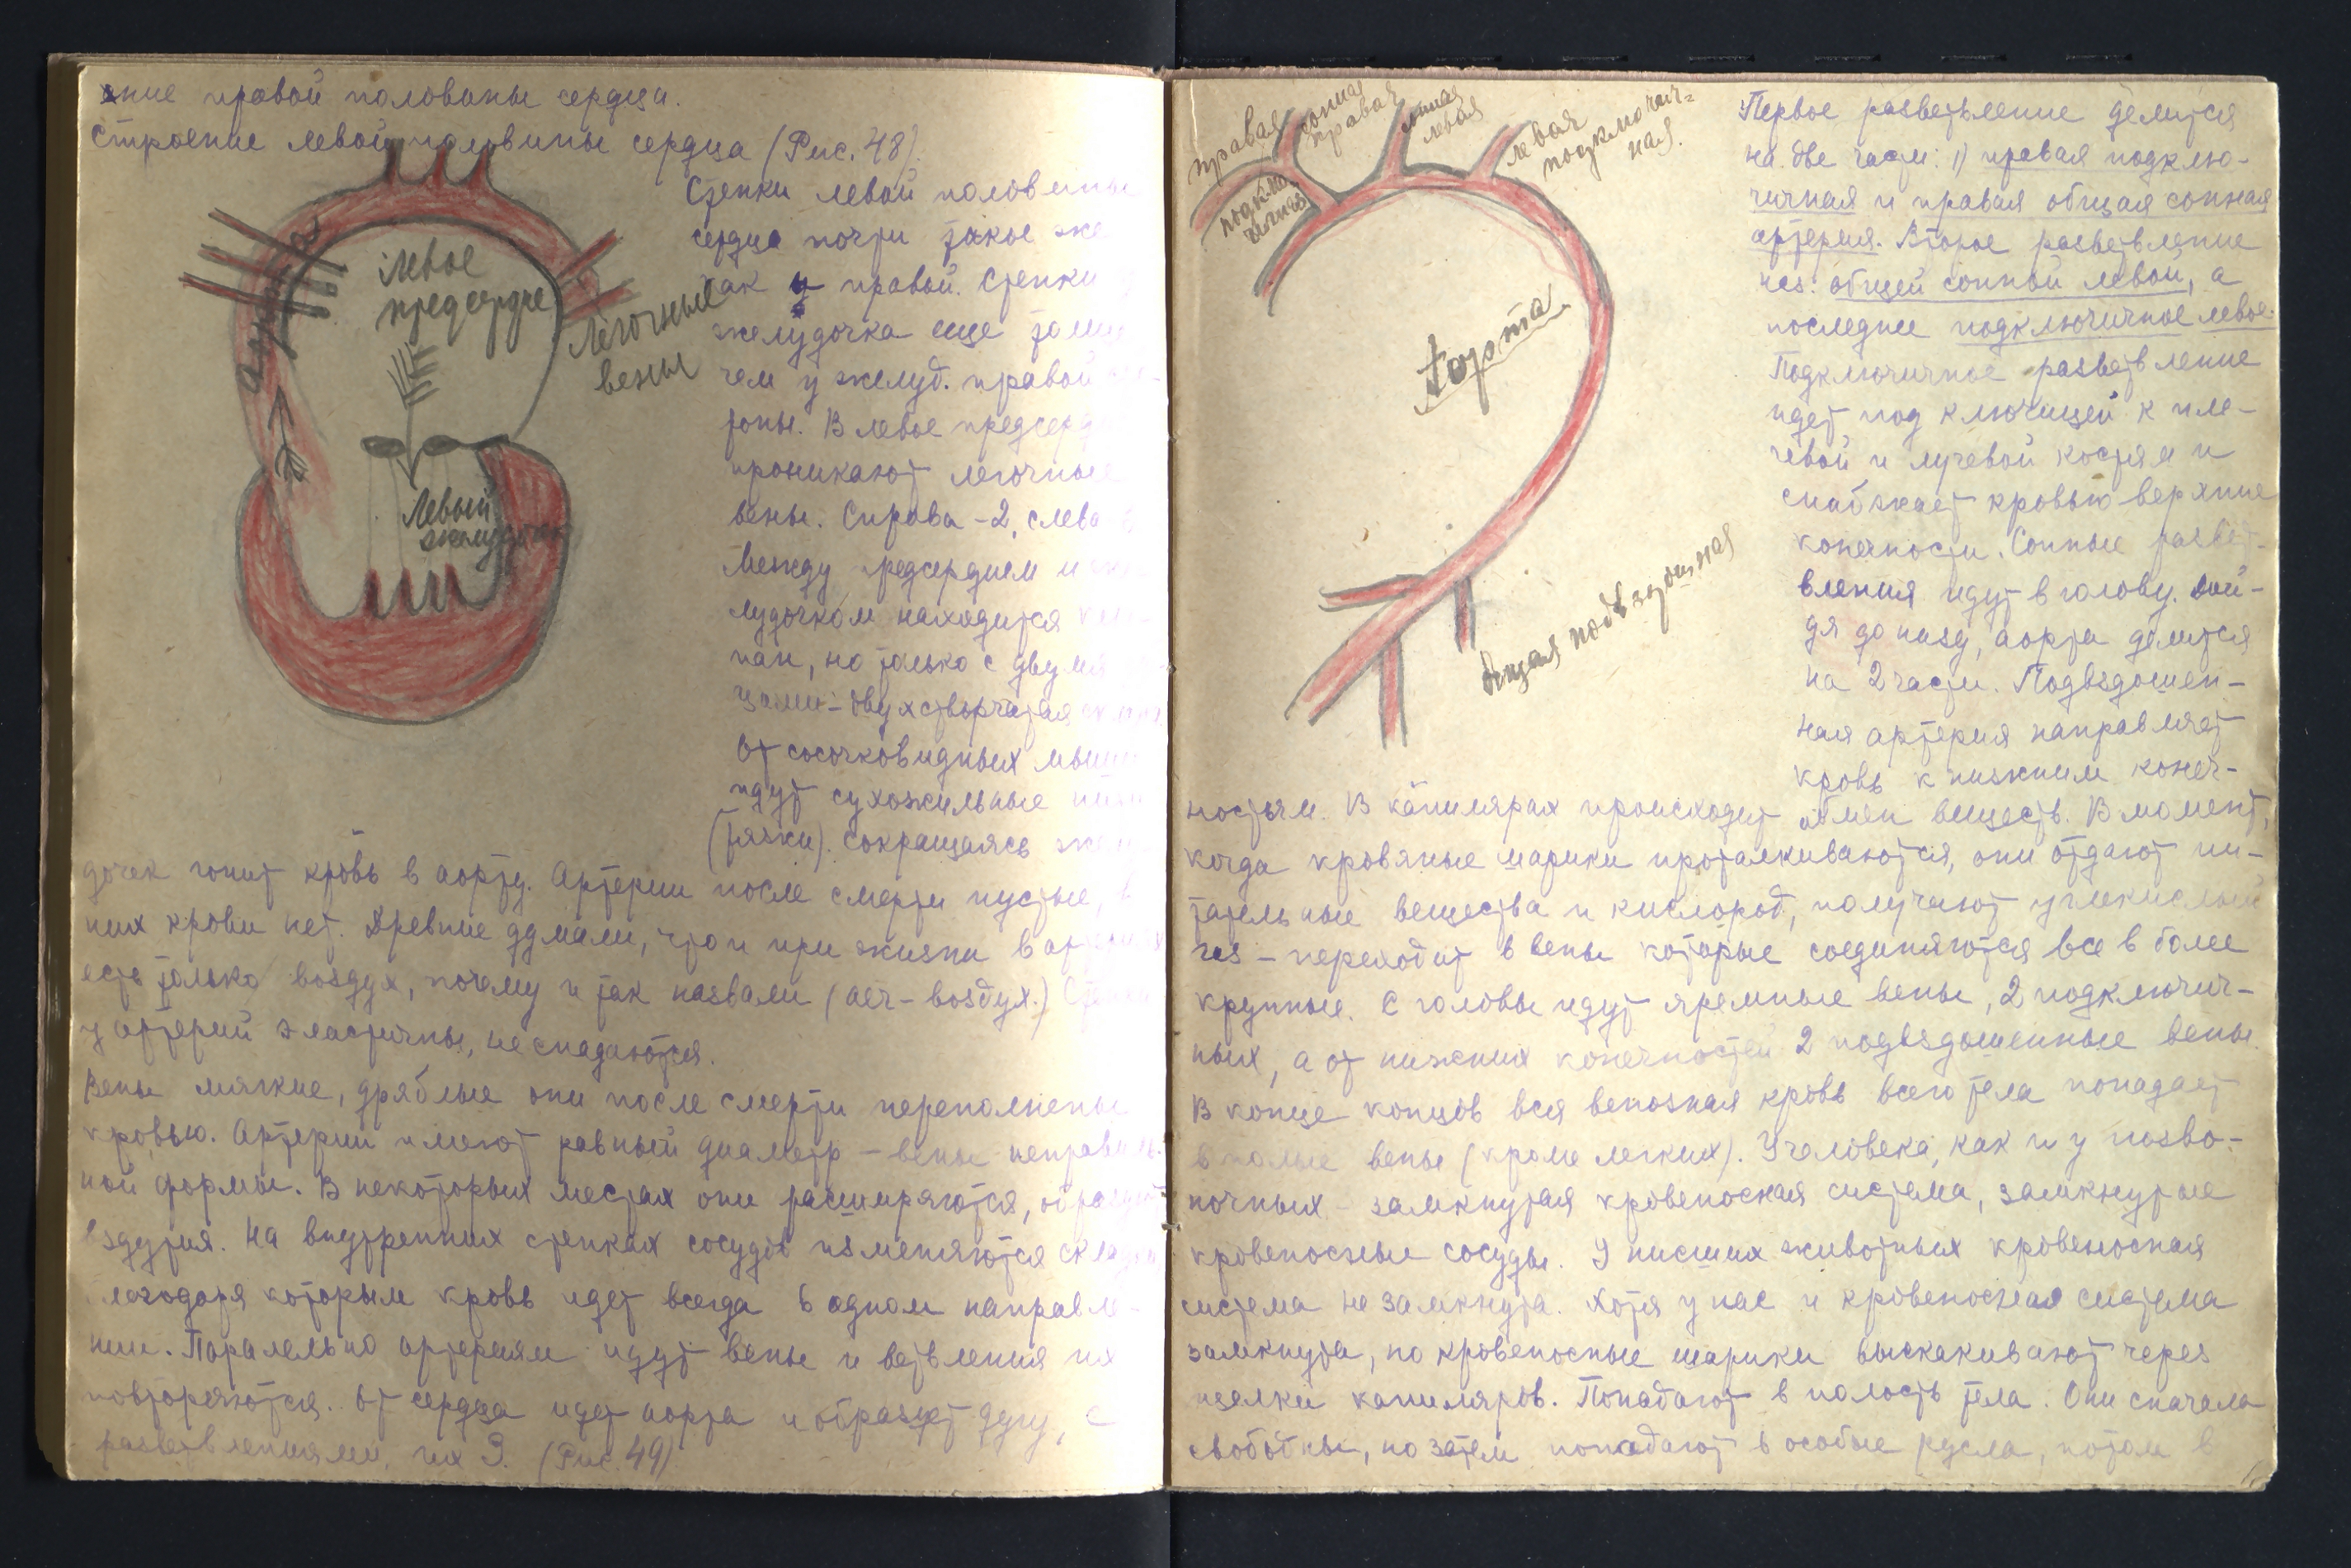 ение правой половины сердца.
Строение левой половины сердца (Рис. 48).
Стенки левой половины
сердца почти такое же
как и правой. Стенки
желудочка еще толще
чем у желуд. правой
роны. В левое предсерд
проникают легочные
вены. Справа - 2, слева
Между редсердием и же-
лудочком находится кла-
пан, но только с двумя
цами - двухстворчатая
От сосочковидных мышц
идут сухожильные нити
(тяжи). Сокращаясь желу
дочек гонит кровь в аорту. Артерии после смерти пустые, в
них крови нет. Древние думали, что и при жизни в артериях
есть только воздух, почему и так назвали (аеr - воздух.) Стенки
у артерий эластичны, не спадаются.
Вены мягкие, дряблые они после смерти переполнены
кровью. Артерии имеют равный диаметр - вены неправиль-
ной формы. В некоторых местах они расширяются, образуют
вздутия. На внутренних стенках сосудов изменяются складки
благодаря которым кровь идет всегда в одном направле-
нии. Паралельно артериям идут вены и ветвления их
повторяются. От сердца идет аорта и образует дугу, с
разветвлениями, их 3. (Рис. 49)
аорта
Левое
предсердие
Легочные
вены
Левый
желудочек
правая
подклю
чичная
сонная
правая
сонная
левая
левая
подключич-
ная.
Аорта
Общая подвздошная
Первое разветвление делится
на две части: 1) правая подклю-
чичная и правая общая сонная
артерия. Второе разветвление
наз: общей сонной левой, а
последнее подключичное левое.
Подключичное разветвление
идет под ключицей к пле-
чевой и лучевой костям и
снабжает кровью верхние
конечности. Сонные развет-
вления идут в голову. Дой-
дя до низу, аорта делится
на 2 части. Подвздошен-
ная артерия направляет
кровь к нижним конеч-
ностям. В капилярах происходит обмен веществ. В момент,
когда кровяные шарики проталкиваются, они отдают пи-
тательные вещества и кислород, получают углекислый
газ - переходит в вены которые соединяются все в более
крупные. С головы идут яремные вены, 2 подключич-
ных, а от нижних конечностей 2 подвздошенные вены.
В конце концов вся венозная кровь всего тела попадает
в полые вены (кроме легких). У человека, как и у позво-
ночных - замкнутая кровеносная система, замкнутые
кровеносные сосуды. У низших животных кровеносная
система не замкнута. Хотя у нас и кровеносная система
замкнута, но кровеносные шарики выскакивают через
щелки капиляров. Попадают в полость тела. Они сначала
свободны, но затем попадают в особые русла, потом в